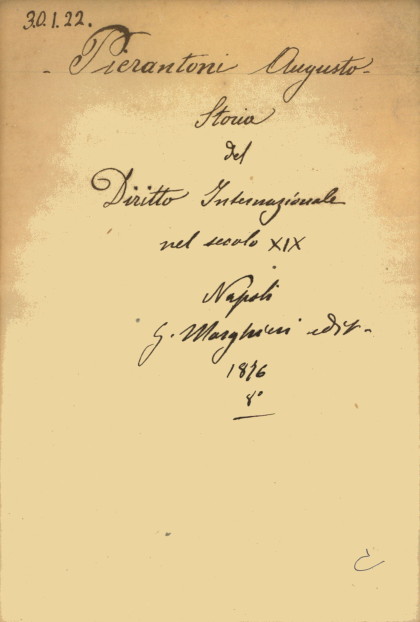 30.1.22.
- Pierantoni Augusto -
Storia
del
Diritto Internazionale
nel secolo XIX
Napoli
G. Marghieri edit.
1876
8°